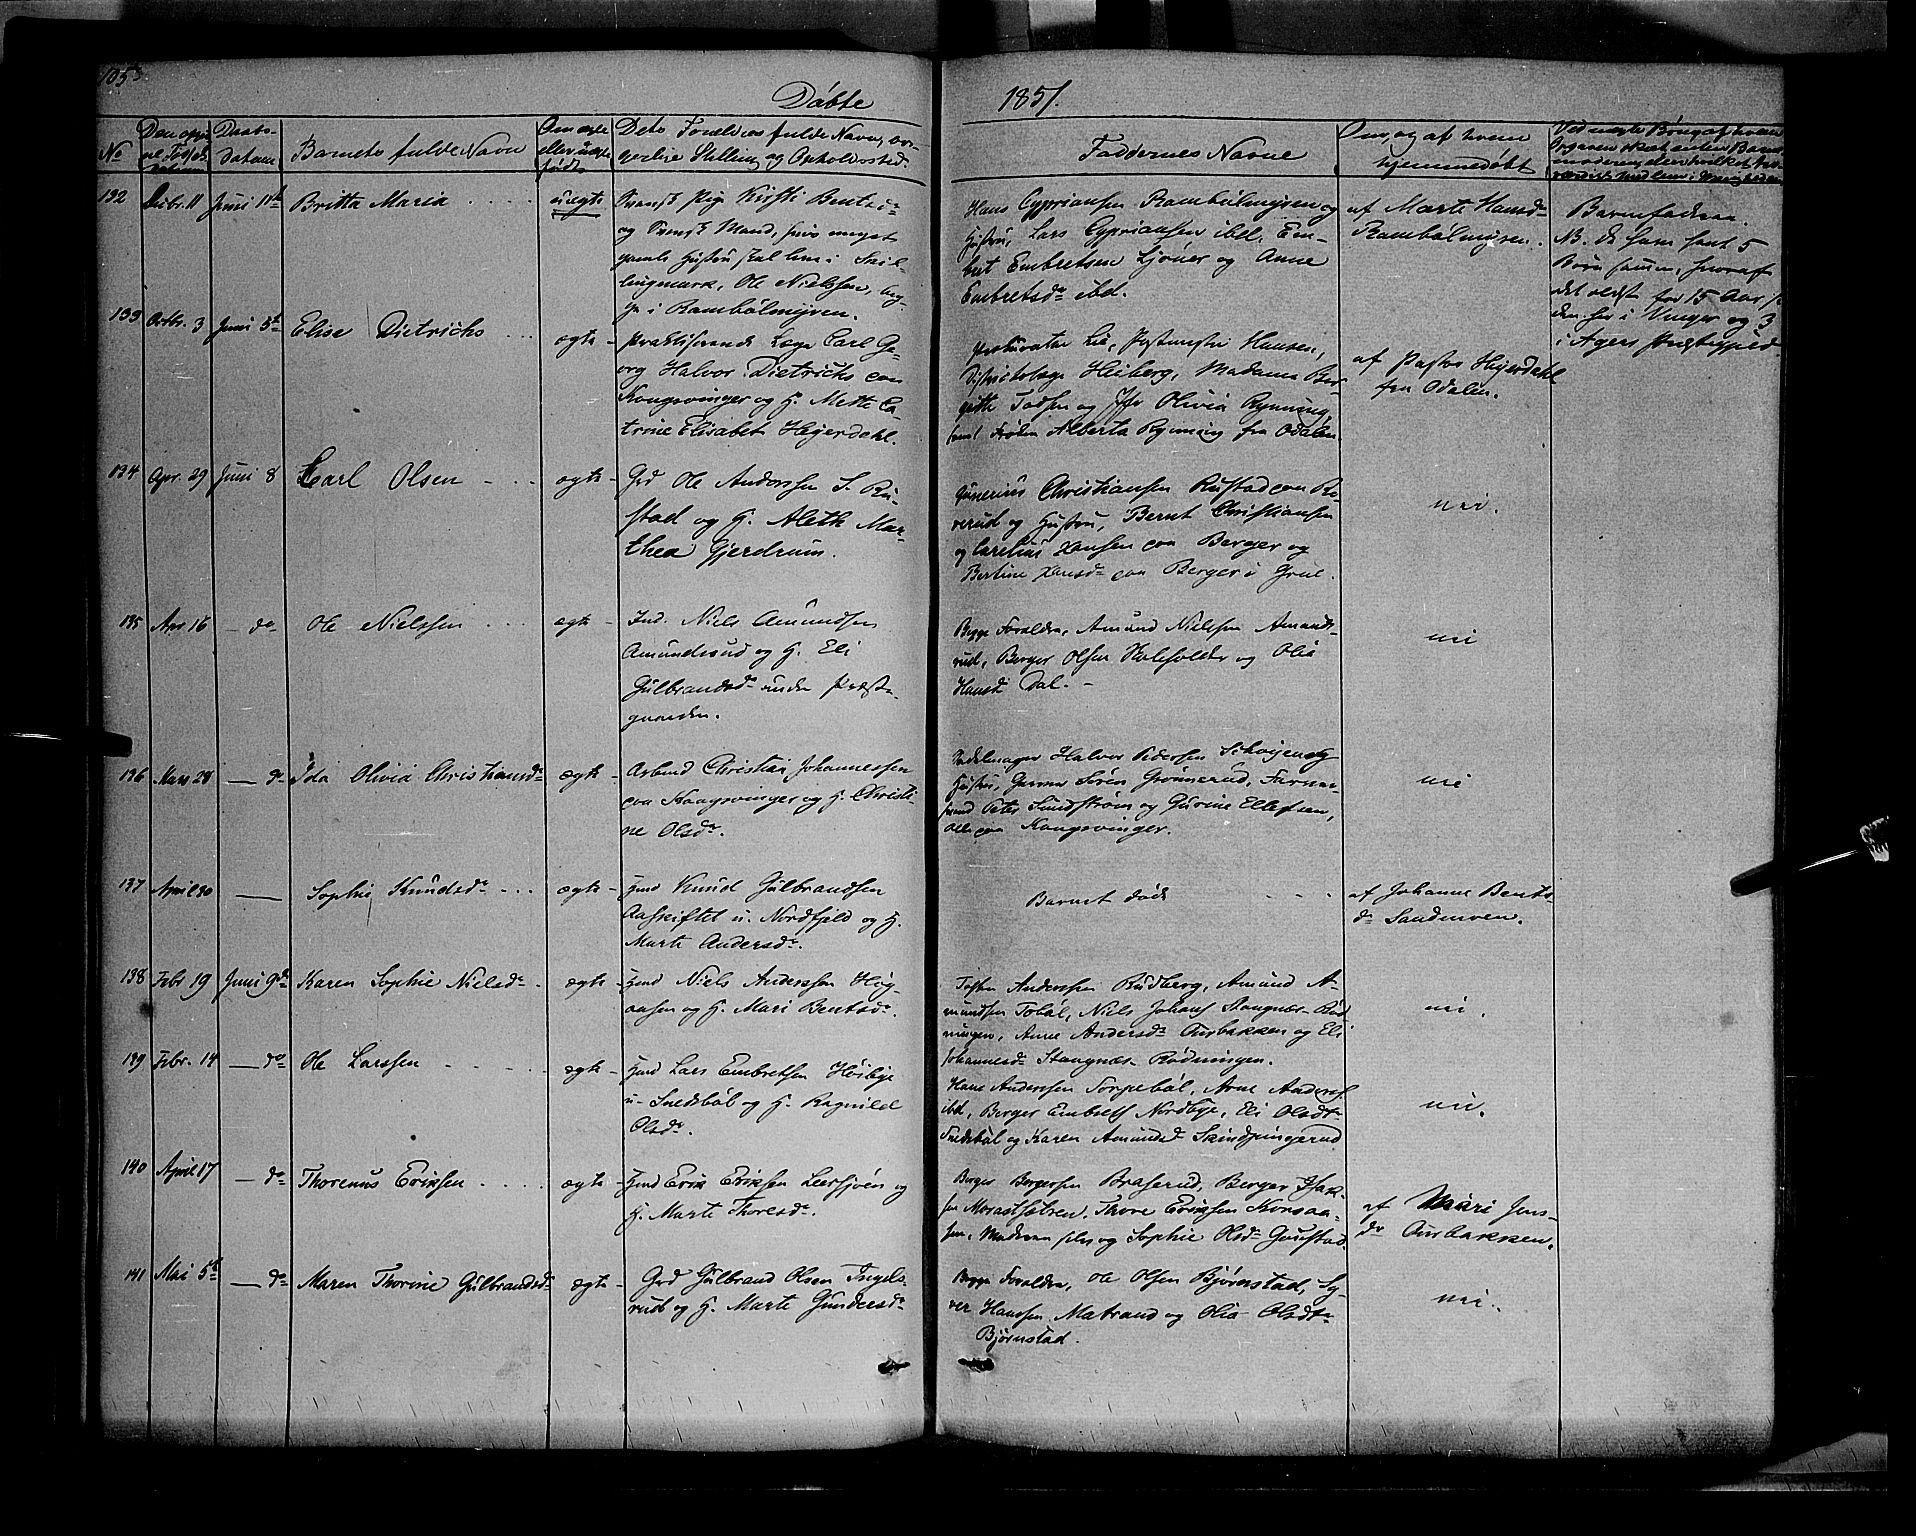 105
Døbte
1851.
No
Datum
Barnets fulde Navn
Dets Forældres fulde Navn, bor-
gerlige Stilling og Opholdssted
Faddernes Navne
Om og af hvem
hjemmedøbt
132 Decbr. 11 Juni 1te Britta Maria uægte
Svensk Pige Kirsti Bentsdr
og Svensk Mand, hvis
gamle Hustru
lingmark, Ole Nielssen,
i Rambölmyren.
Hans Cyprianssen Rambölmyren og
Hustru, Lars Cyprianssen ibd. Em-
bret Embretsen Ljöner og Anne
Embretsdr ibd.
af Marte Hansdr
Rambölmyren.
Barnefaderen.
NB. de have havt 5
Børn sammen, hvoraf
det ældste for 15 Aar
her i Vinger og 3
i Agers Præstegjeld.
133 Octbr. 3 Juni 5te Elise Dietrichs ægte
Praktiserende Læge Carl Ge-
org Halvor Dietrichs paa
Kongsvinger og H. Mette Ca-
trine Elisabet Hejerdahl.
Procurator Lie, Postmester Hansen,
Districtslæge Heiberg, Madame Ber-
gitte Todsen og Jfr Olivia Rynning,
samt Frøken Alberta Rynning fra Odalen.
af Pastor Hejerdahl
fra Odalen.
134 Apr. 29 Juni 8 Carl Olsen ægte
Grd Ole Anderssen S. Ru-
stad og H. Aleth Mar-
thea Gjerdrum.
Gunerius Christiansen Rustad paa Ro-
verud og Hustru, Bernt Christiansen
og Carelius Hansen paa Berger og
Bertine Hansdr paa Berger i Grue.
nei.
135 Apr 16 do Ole Nielssen ægte
Ind. Niels Amundsen
Amundsrud og H. Eli
Gulbrandsdr under Præste-
gaarden.
Begge Forældre, Amund Nielsen Amunds-
rud, Berger Olsen Holeholdet og Olia
Hansdr Dal.
nei
136 Mars 28 do Ida Olivia Christiansdr ægte
Arbmd Christian Johannessen
paa Kongsvinger og H. Christi-
ne Olsdr.
Sadelmager Halvor Pedersen Schøyen og
Hustru, Garver Søren Grønnerud,
Peter Sundstrøm og Gurine Ellefsen,
alle paa Kongsvinger.
nei
137 April 30 Sophie Knudsdr ægte
Hmd Knud Gulbrandsen
Aaskiftet u. Nordfjeld og H.
Marte Andersdr.
Barnet død
af Johanne Bents-
dr Sandmoen.
138 Febr 19 Juni 9de Karen Sophie Nielsdr ægte
Hmd Niels Anderssen Høg-
aasen og H. Mari Bentsdr.
Anderssen Rudberg, Amund A-
mundsen Tobøl, Niels Johans Stangnæs-Rød-
ningen, Anne Andersdr Aurbakken og Eli
Johannesdr Stangnæs-Rødningen.
nei.
139 Febr. 14 do Ole Larssen ægte
Hmd Lars Embretsen Høibye
u. Sneisböl og H. Ragnild
Olsdr.
Hans Anderssen Torgebøl, Arne Anders.
ibd, Berger Embrets Nordbye, Eli Olsdr
Sneisböl og Karen Amundsdr Skindpungerud
nei.
140 April 17 do Thorenus Eriksen ægte
Hmd Erik Eriksen Leersjøen og
H. Marte Thoresdr.
Berger Bergersen Braserud, Berger Isak-
sen Morastsætren, Thore Eriksen Korsaa-
sen, Moderen selv og Sophie Olsdr Gaustad.
af Mari Jens-
dr Aurbakken.
141 Mai 5te do Maren Thorine Gulbrandsdr ægte
Grd Gulbrand Olsen Ingels-
rud og H. Marte Gundersdr
Begge Forældre, Ole Olsen Bjørnstad, Sy-
ver Hanssen Matrand og Olia Olsdr
Bjørnstad.
nei.